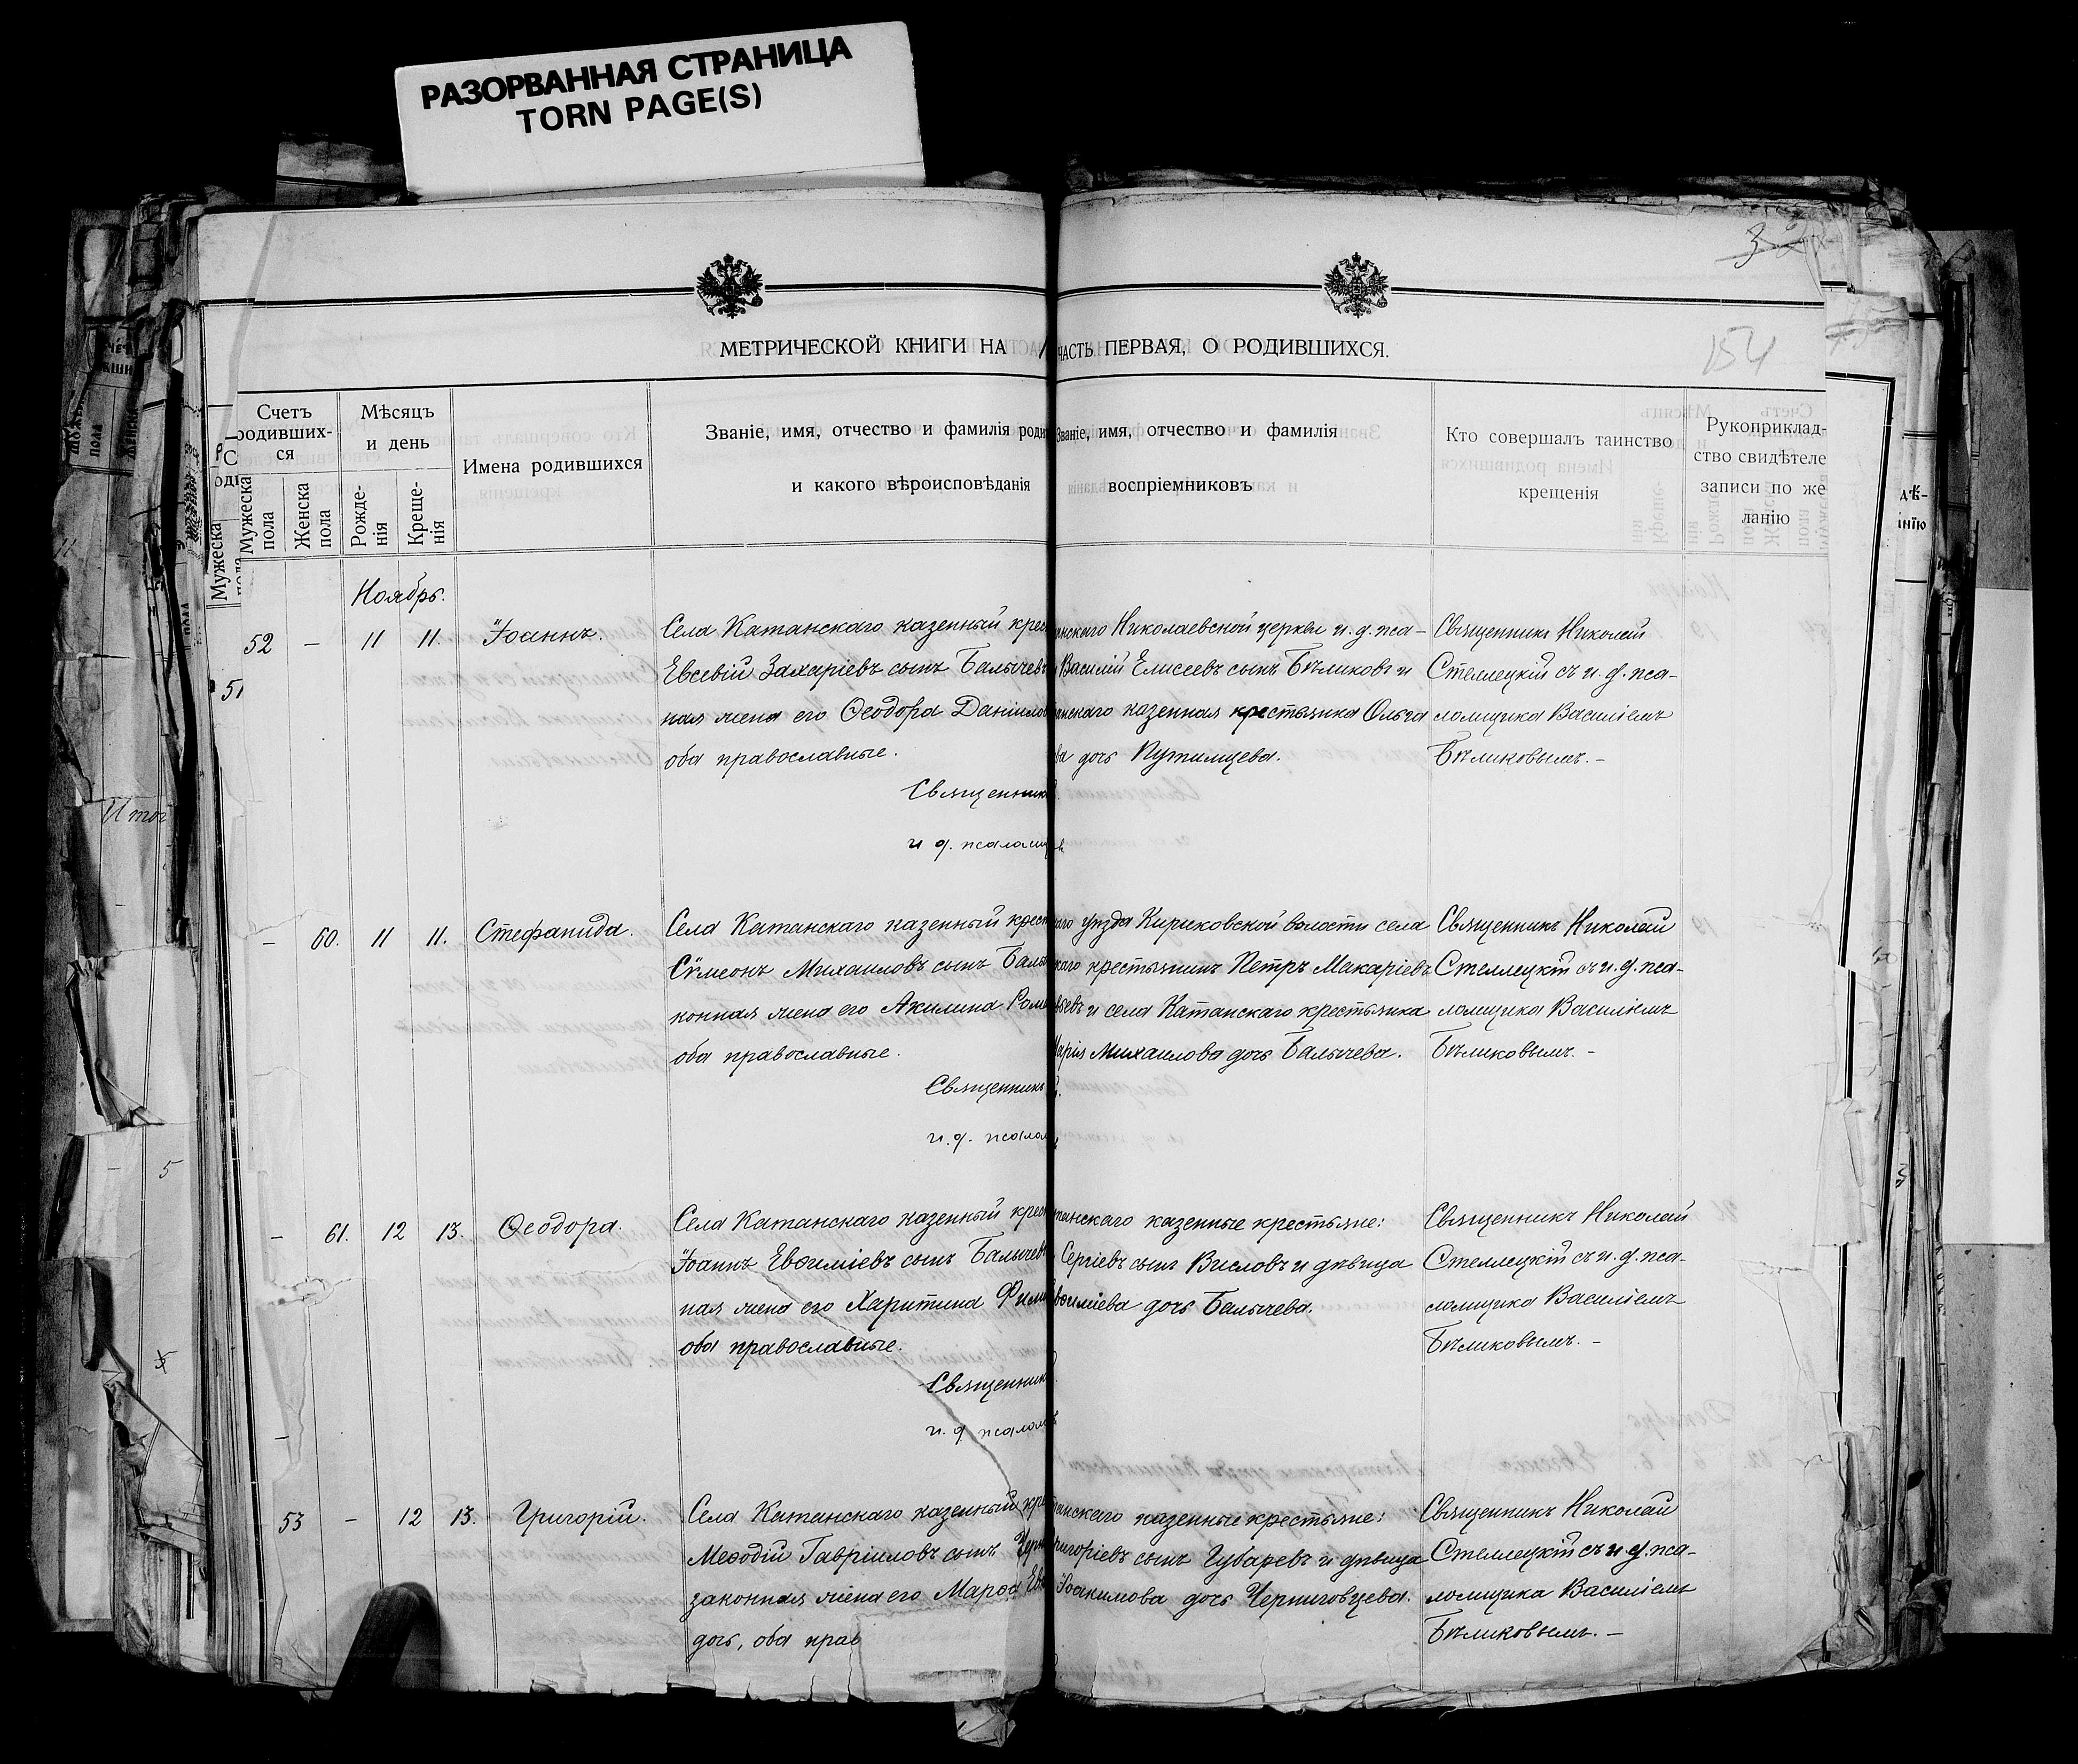 РАЗОРВАННАЯ СТРАНИЦА
TORN PAGE(S)
154
МЕТРИЧЕСКОЙ КНИГИ НА
ЧАСТЬ ПЕРВАЯ, О РОДИВШИХСЯ.
Счетъ родивших-ся
Мужеска пола
Женска пола
Мѣсяцъ и день
Рожде-нія
Креще-нія
Имена родившихся
Званіе, имя, отчество и фамилія роди
и какого вѣроисповѣданія
Званіе, имя, отчество и фамилія
воспріемниковъ
Кто совершалъ таинство
крещенія
Рукоприклад-
ство свидѣтеле
записи по же
ланію
Ноябрь.
52 — 11 11. Іоаннъ.
Села Катанскаго казенный крес
Евсевій Захаріевъ сынъ Балычевъ
ная жена его Ѳеодора Даніило
оба православные.
Священник
и д. псаломщ
анскаго Николаевской церкви и. д. пса-
Василій Елисеевъ сынъ Бѣликовъ и
анскаго казенная крестьянка Ольга
ва дочь Путимцева.
Священникъ Николай
Стеллецкій съ и. д. пса-
ломщика Василіемъ
Бѣликовымъ. -
51
— 60. 11 11. Стефанида.
Села Катанскаго казенный крест
Сѵмеонъ Михаиловъ сынъ Балы
конная жена его Акилина Рома
оба православные.
Священникъ
и. д. псалом
каго уѣзда Кириковской волости села
каго крестьянинъ Петръ Макаріевъ
ьевъ и села Катанскаго крестьянка
Марія Михаилова дочь Балычева.
Священникъ Николай
Стеллецкій съ и. д. пса-
ломщика Василіемъ
Бѣликовымъ. -
— 61. 12 13. Ѳеодора.
Села Катанскаго казенный крест
Іоаннъ Евѳиміевъ сынъ Балычевъ
ная жена его Харитина Фили
оба православные.
Священник
и. д. псалом
танскаго казенные крестьяне:
Сергіевъ сынъ Висловъ и дѣвица
вѳиміева дочь Балычева.
Священникъ Николай
Стеллецкій съ и. д. пса-
ломщика Василіемъ
Бѣликовымъ. -
53 — 12 13. Григорій.
Села Катанскаго казенный кре
Меѳодій Гавріиловъ сынъ Черн
законная жена его Марѳа Ев
дочь, оба прав
танскаго казенные крестьяне:
ригоріевъ сынъ Губаревъ и дѣвица
Іоакимова дочь Черниговцева.
Священникъ Николай
Стеллецкій съ и. д. пса-
ломщика Василіемъ
Бѣликовымъ. —